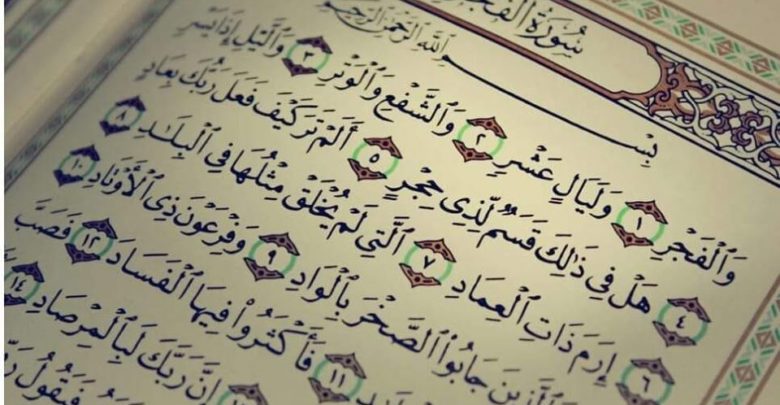 سُورَةُ الفَجْرِ
بِسْمِ ٱللَّهِ ٱلرَّحْمَٰنِ ٱلرَّحِيمِ
وَٱلْفَجْرِ ١ وَلَيَالٍ عَشْرٍ ٢ وَٱلشَّفْعِ وَٱلْوَتْرِ ٣ وَٱلَّيْلِ إِذَا يَسْرِ
٤ هَلْ فِى ذَٰلِكَ قَسَمٌ لِّذِى حِجْرٍ ٥ أَلَمْ تَرَ كَيْفَ فَعَلَ رَبُّكَ بِعَادٍ
٦ إِرَمَ ذَاتِ ٱلْعِمَادِ ٧ ٱلَّتِى لَمْ يُخْلَقْ مِثْلُهَا فِى ٱلْبِلَٰدِ ٨
ٱلَّذِينَ جَابُوا۟ ٱلصَّخْرَ بِٱلْوَادِ ٩ وَفِرْعَوْنَ ذِى ٱلْأَوْتَادِ ١٠
١١ فَأَكْثَرُوا۟ فِيهَا ٱلْفَسَادَ ١٢ فَصَبَّ
إِنَّ رَبَّكَ لَبِٱلْمِرْصَادِ ١٤
فَيَقُولُ